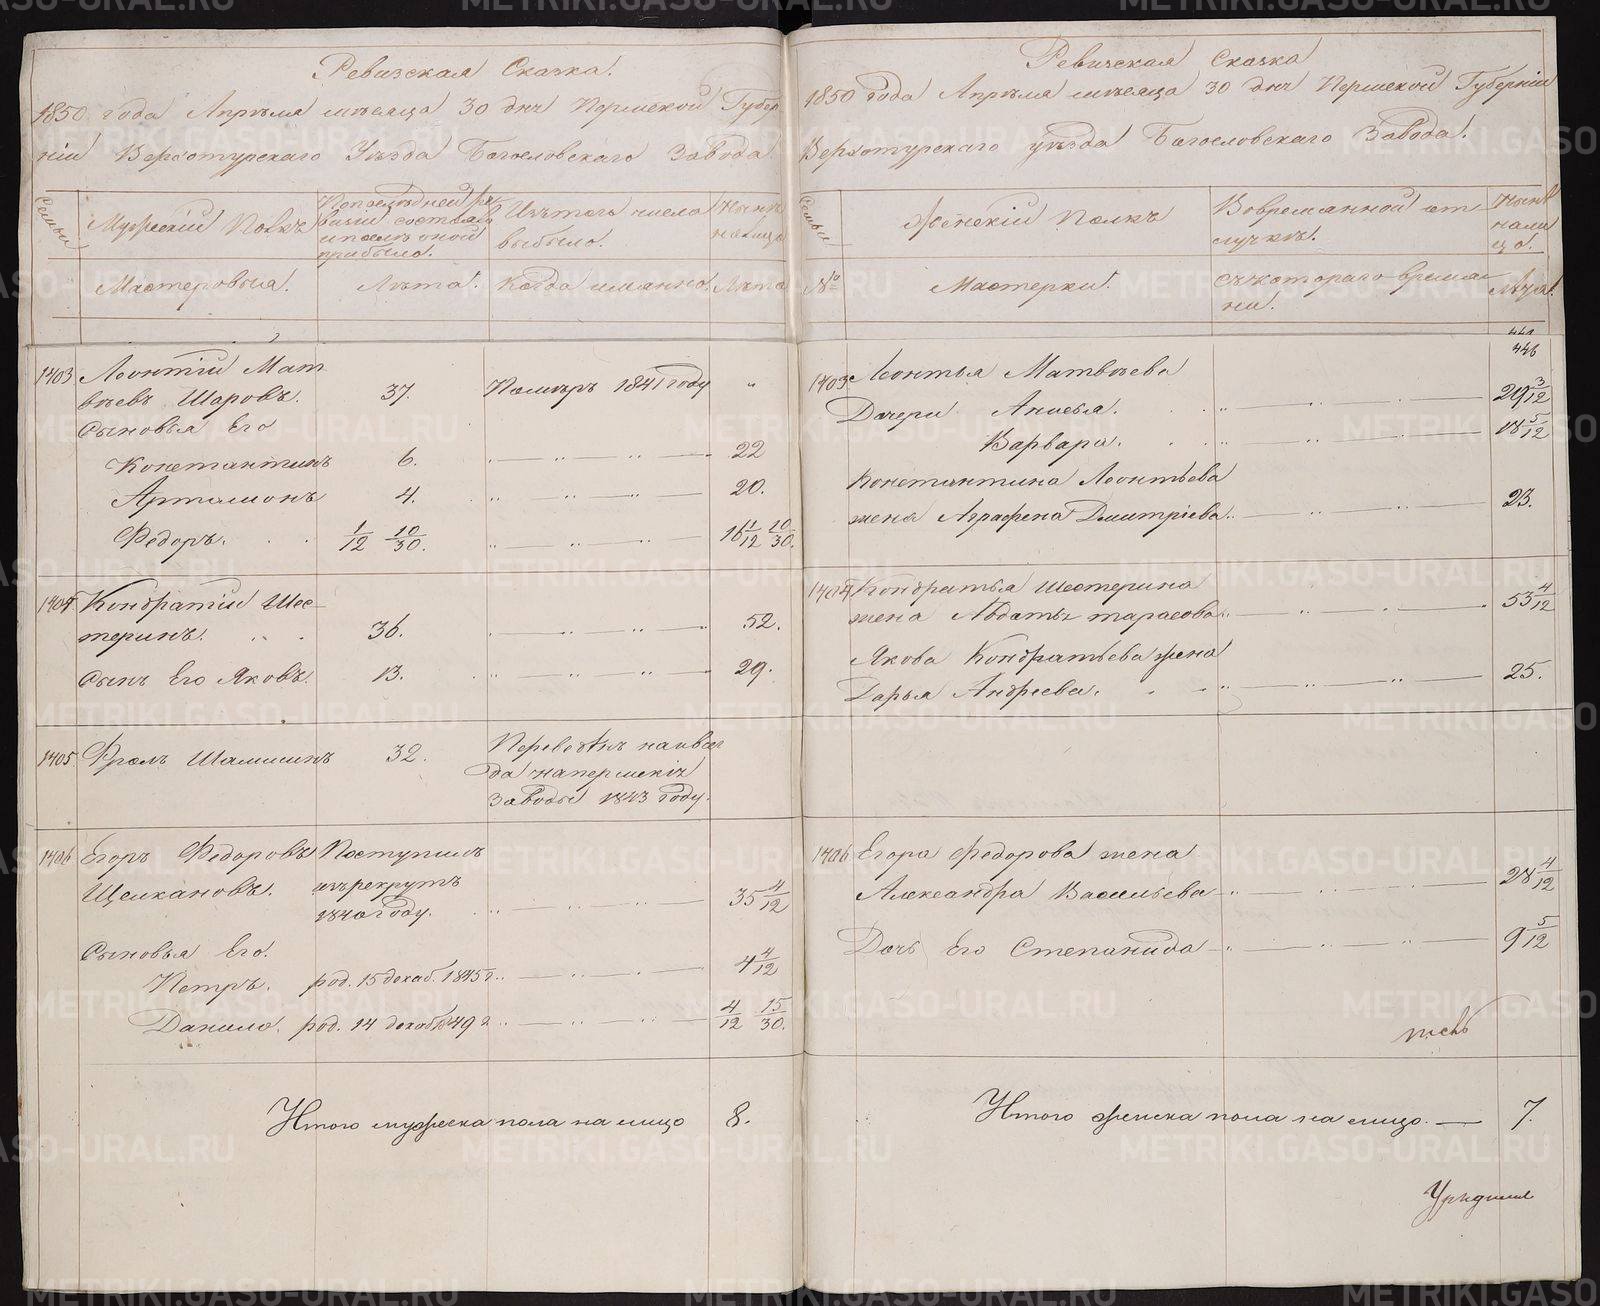 Ревизская Сказка.
1850 года Апрѣля мѣсяца 30 дня Пермской Губер
ніи Верхотурскаго Уѣзда Богословскаго Завода
Семьи
Мужескій Полъ
По послѣдней ре
визіи состояло
и послѣ оной
прибыло.
Изъ того числа
выбыло.
Нынѣ
на лицо
Мастеровыя.
Лѣта.
Когда именно.
Лѣта
1403 Леонтій Мат
вѣевъ Шаровъ. 37. Померъ 1841 году "
Сыновья Его
Константинъ 6. 22
Артамонъ 4. 20.
Федоръ. 1/12 10/30. 16 1/12 10/30.
1404 Кондратій Шес-
теринъ. 36. 52.
Сынъ Его Яковъ. 13. 29.
1405 Фролъ Шамшинъ 32. Переведѣнъ на
да на пермскія
заводы 1843 году.
1406 Егоръ Федоровъ Поступилъ
Щелкановъ. изъ рекрутъ
1840 году. 35 4/12
Сыновья Его.
Петръ. род. 15 декаб. 1845 г. 4 4/12
Данило. род. 14 декаб 1849 г 4/12 15/30.
Итого мужеска пола на лицо 8.
Ревизская Сказка
1850 года Апрѣля мѣсяца 30 дня Пермской Губерніи
Верхотурскаго уѣзда Богословскаго Завода.
Семьи
Женскій Полъ
Во временной от-
лучкѣ.
Нынѣ
на ли
цо.
№
Мастерки.
Съ котораго време-
ни.
Лѣта.
446
1403 Леонтья Матвѣева
Дочери Анисья. 20 3/12
Варвара. 18 5/12
Константина Леонтьева
жена Аграфена Дмитріева. 23.
1404 Кондратья Шестерина
жена Авдотья тарасова. 53 4/12
Якова Кондратьева жена
Дарья Андреева. 25.
1406 Егора Федорова жена
Александра Васильева 28 4/12
Дочь Его Степанида 9 5/12
Итого женска пола на лицо. 7.